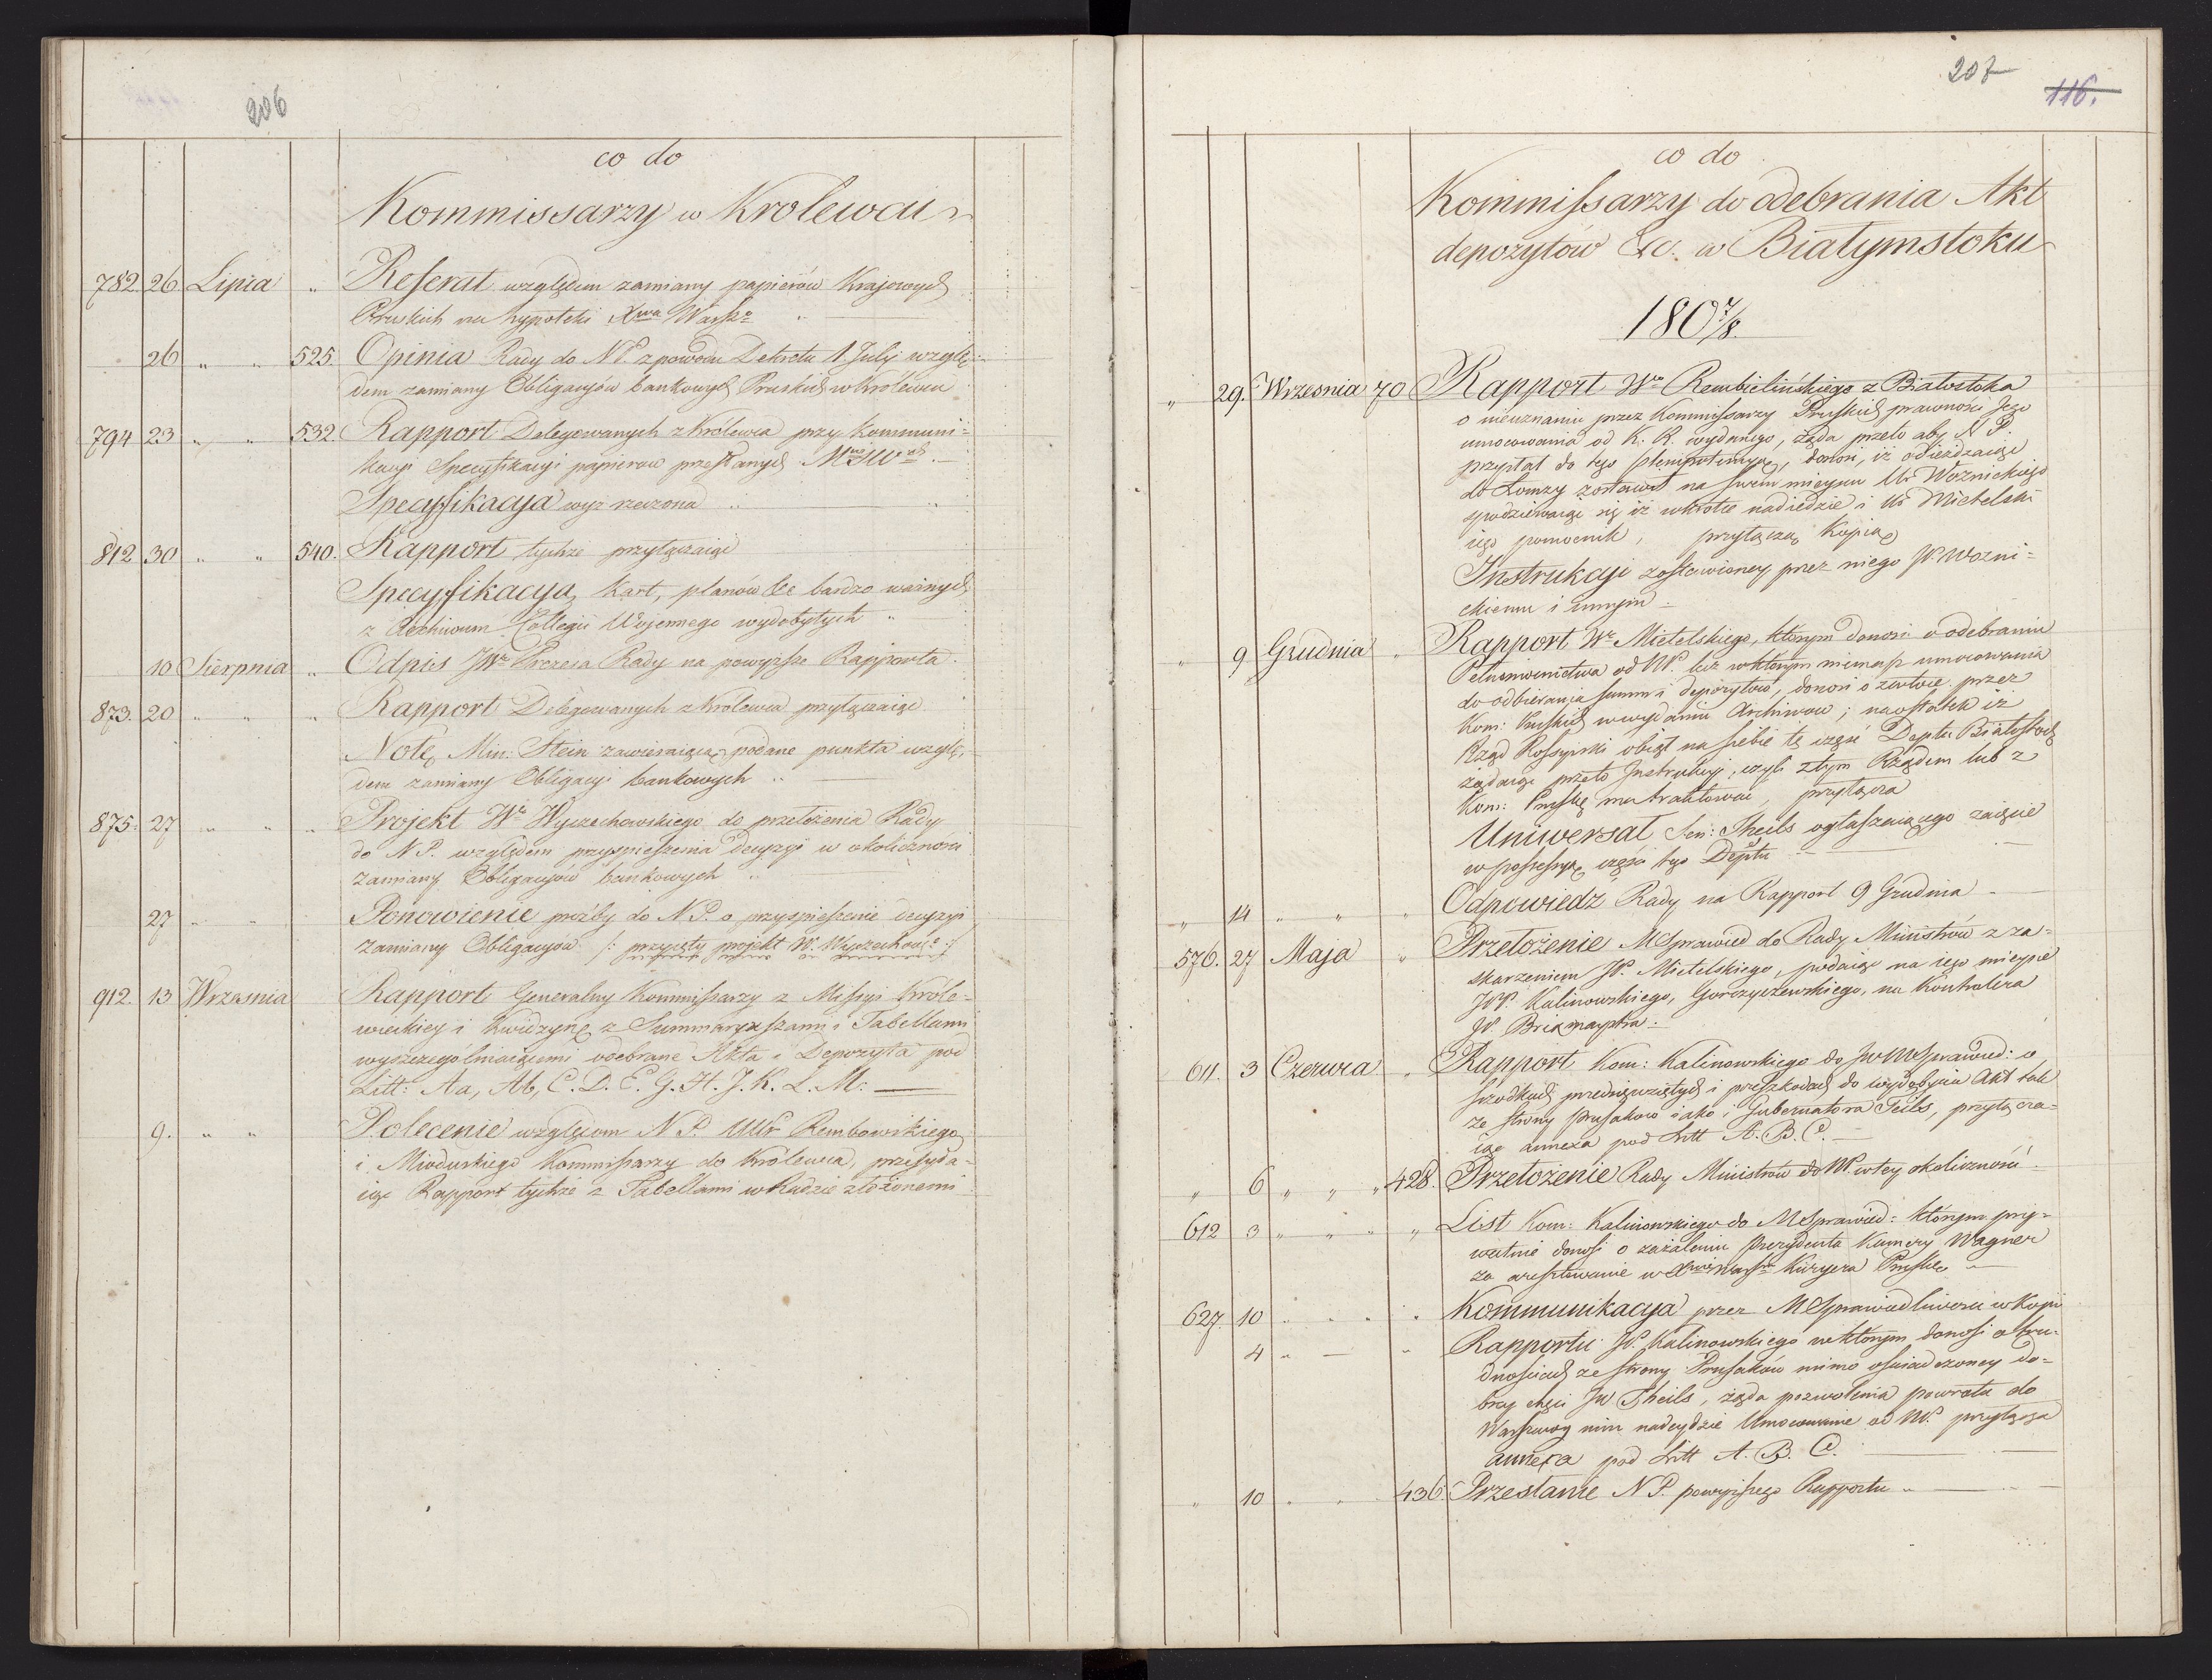 206
co do
Kommissarzy w Krolewcu
782 26 Lipca „ Referat względem zamiany papierów Krajowych
Pruskich na hypoteki Xwa Warszo
26 „ „ 525. Opinia Rady do N.P. z powodu Dekretu 1. July wzglę-
dem zamiany Obligacyów bankowych Pruskich w Królewcu
794 23 „ „ 532. Rapport Delegowanych z Królewca przy kommuni-
kacyi Specyfikacyi papierow przesłanych
Specyfikacya wyż rzeczona
812 30 „ „ 540. Rapport tychże przyłączaiąc
Specyfikacyą Kart, planów &c bardzo ważnych
z Archiwum Collegii Woiennego wydobytych
10 Sierpnia „ Odpis JWo Prezesa Rady na powyższe Rapporta
873. 20 „ „ „ Rapport Delegowanych z Królewca przyłączaiąc
Notę Min: Stein zawieraiącą podane punkta wzglę-
dem zamiany Obligacyi bankowych
875. 27 „ „ „ Projekt Wo Wyczechowskiego do przełożenia Rady
do N.P. względem przyspieszenia decyzyi w okoliczności
zamiany Obligacyów bankowych
27 „ „ Ponowienie proźby do N.P. o przyspieszenie decyzyi
zamiany Obligacyów /: przyięty projekt W. Wyczechows: :/
912. 13 Września Rapport Generalny Kommissarzy z Missyi Króle-
wieckiey i Kwidzynę z Summaryuszami i Tabellami
wyszczególniaiącemi odebrane Akta i Depozyta pod
Litt: Aa, Ab, C. D. E. G. H. J. K. L. M:
9. „ „ Polecenie względem N.P. Rembowskiego
i Mioduskiego Kommissarzy do Królewca, przesyła-
iąc Rapport tychże z Tabellami w Radzie złożonemi
207
116.
co do
Kommissarzy do odebrania Akt
depozytów &c. w Białymstoku
1807/8.
„ 29. Wrzesnia 70 Rapport Wo Rembielińskiego z Białostoka
o nieuznaniu przez Kommissarzy Pruskich prawności Jego
umocowania od K. R. wydanego, żąda przeto aby N.P.
przysłał do tego plenipotencyą, donosi, iż odieżdzaiąc
do Łomzy zostawił na swem mieyscu Ur Woznickiego
spodziewaiąc się iż wkrotce nadiedzie i Ur Mietelski
iego pomocnik, przyłącza Kopią
Instrukcyi zostawioney przez niego W. Wozni-
ckiemu i innym
„ 9 Grudnia „ Rapport Wo Mietelskiego, ktorym donosi o odebraniu
Pełnomocnictwa od NP. lecz w ktorym niemasz umocowania
do odbierania summ i depozytow, donosi o zwłoce przez
Kom: Pruskich w wydaniu Archiwow; naostatek iż
Rząd Rossyiski obiął na siebie tę część Deptu Białostoc
żądaiąc przeto Instrukcyi, czyli z tym Rządem lub z
Kom: Pruską ma traktować, przyłącza
Uniwersał Sen: Theils ogłaszaiącego zaięcie
w possessyą części tego Deptu
„ 14 „ „ „ Odpowiedz Rady na Rapport 9 Grudnia
576. 27 Maja „ Przełożenie MSprawied do Rady Ministrów z za-
skarzeniem W. Mietelskiego, podaiąc na iego mieysce
JWP. Kalinowskiego, Gorczyczewskiego, na Kontrolera
W.
611. 3 Czerwca „ Rapport Kom: Kalinowskiego do JWMSprawied: o
srodkach przedsięwziętych i przeszkodach do wydobycia Akt tak
ze strony Prusakow iako i Gubernatora Teils, przyłącza-
iąc annexa pod Litt A. B. C.
„ 6 „ „ „ 428. Przełożenie Rady Ministrów do NP. w tey okoliczności
612 3 „ „ „ „ List Kom: Kalinowskiego do MSprawied: ktorym pry-
watnie donosi o zażaleniu Prezydenta Kamery Wagner
za aresztowanie w Xwie Warsk Kuryera Prusko
627. 10 „ „ „ „ Kommunikacya przez MSprawiedliwości w Kopii
4 „ — „ Rapportu W. Kalinowskiego w ktorym donosi o tru-
dnosciach ze strony Prusaków mimo oswiadczoney do-
brey chęci JW Theils, żąda pozwolenia powrotu do
Warszawy nim nadeydzie Umocowanie od NP. przyłącza
annexa pod Litt A. B. C.
„ 10 „ „ 436. Przesłanie N.P. powyższego Rapportu